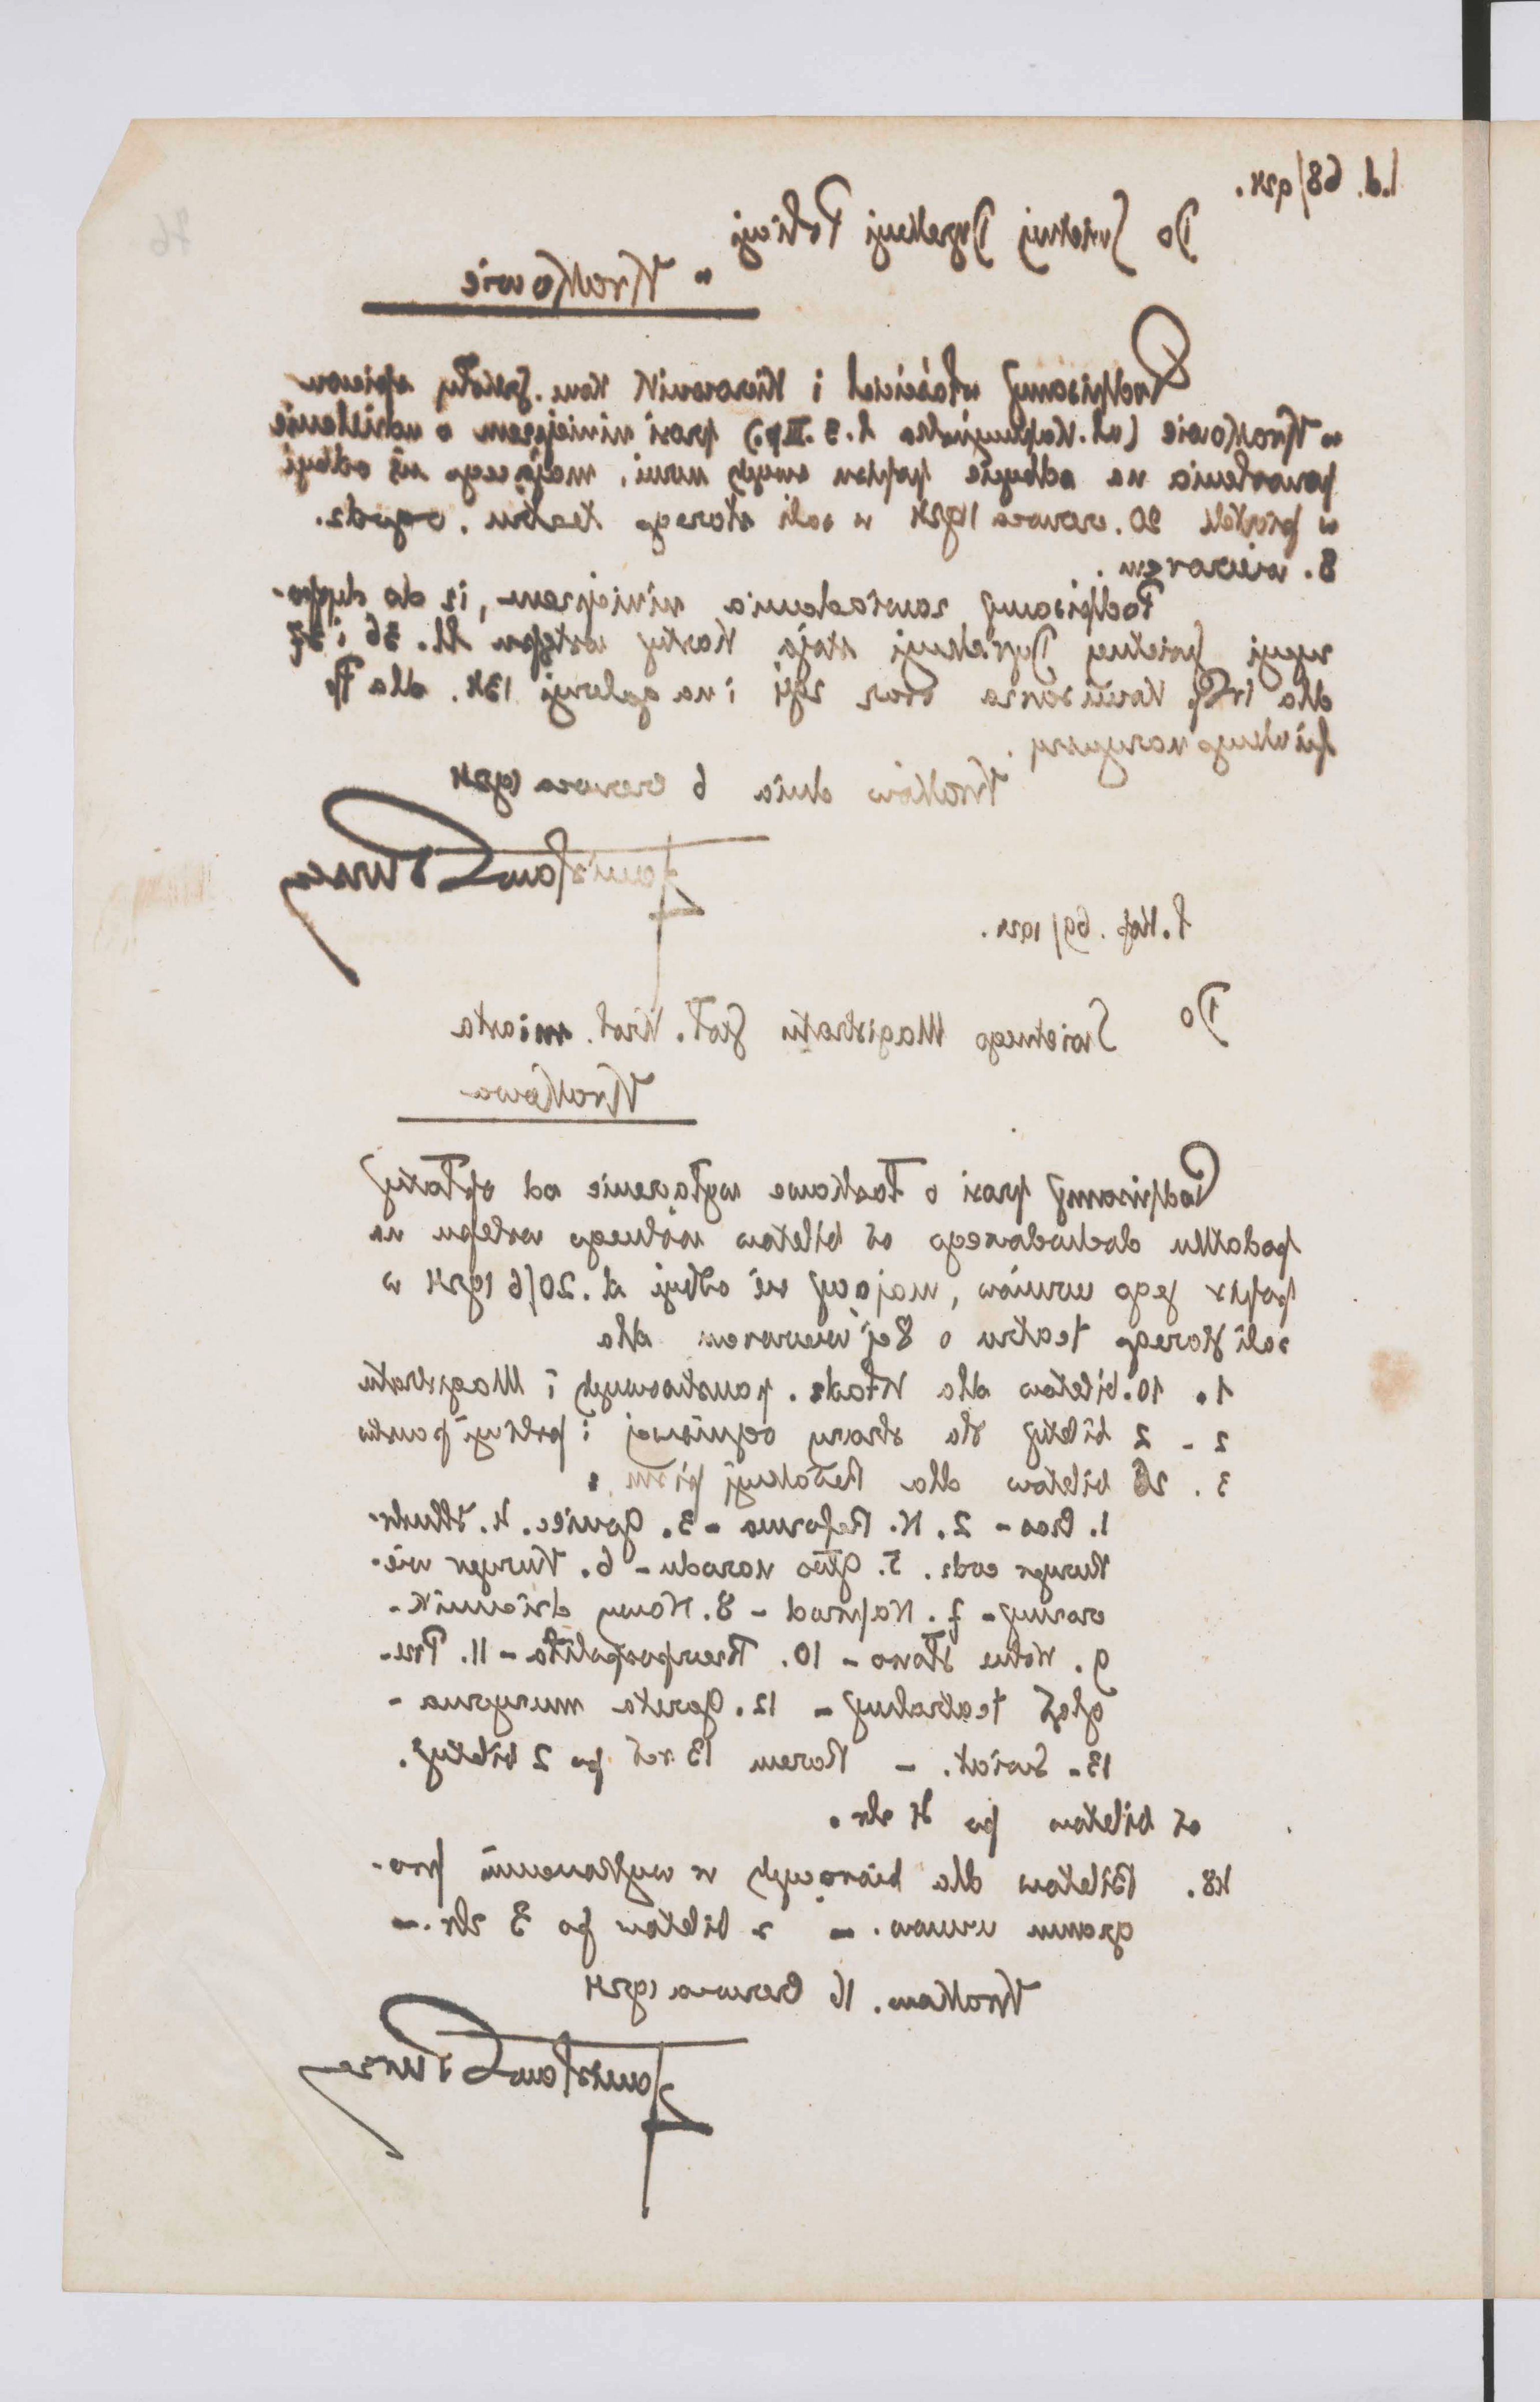 l.d. 68/924.
76
Do Świetnej Dyrekcyi Policyi
w Krakowie
Podpisany właściciel i kierownik konc. szkoły śpiewu
w Krakowie (ul. Kapucyńska l. 3. II p.) prosi niniejszem o udzielenie
pozwolenia na odbycie popisu swych uczni, mającego się odbyć
w piątek 20. czerwca 1924 w sali starego teatru. o godz.
8. wieczorem.
Podpisany zawiadamia niniejszem, iż do dyspo-
zycyi Świetnej Dyrekcyi stoją karty wstępu Nr. 36 i 37
dla WP. Komisarza oraz i na galeryi 134. dla
Kraków dnia 6 czerwca 1924
Stanisław Bursa
l. kop. 69/1924.
Do
Świetnego Magistratu Stoł. Król. miasta
Krakowa
Podpisany prosi o łaskawe wyłączenie od opłaty
podatku dochodowego od biletów wolnego wstępu na
popis jego uczniów, mający się odbyć d. 20/6 1924 w
sali starego teatru o 8ej wieczorem dla
1. 10. biletów dla Władz. państwowych i Magistratu
2 - 2 bilety dla straży ogniowej i policyi państw
3. 26 biletów dla Redakcyj pism:
1. Czas - 2. N. Reforma - 3. Goniec. 4. Illustr.
Kuryer codz. 5. Głos narodu - 6. Kuryer wie-
czorny - 7. Naprzód - 8. Nowy dziennik -
9. Wolne słowo - 10. Rzeczpospolita - 11. Prze-
gląd teatralny - 12. Gazeta muzyczna -
13 - Świat. - Razem 13 red po 2 bilety.
od biletów po 4 złr.
48. Biletów dla biorących w wykonaniu pro-
gramu uczniów. - z biletów po 3 złr. -
Kraków. 16 Czerwca 1924
Stanisław Bursa